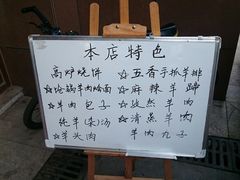 本店特色
高炉烧饼
☆烩锅羊肉焖面
☆羊肉包子
纯羊杂汤
☆羊头肉
☆五香手抓羊排
☆麻辣羊蹄
☆孜然羊肉
☆清蒸羊肉
羊肉丸子